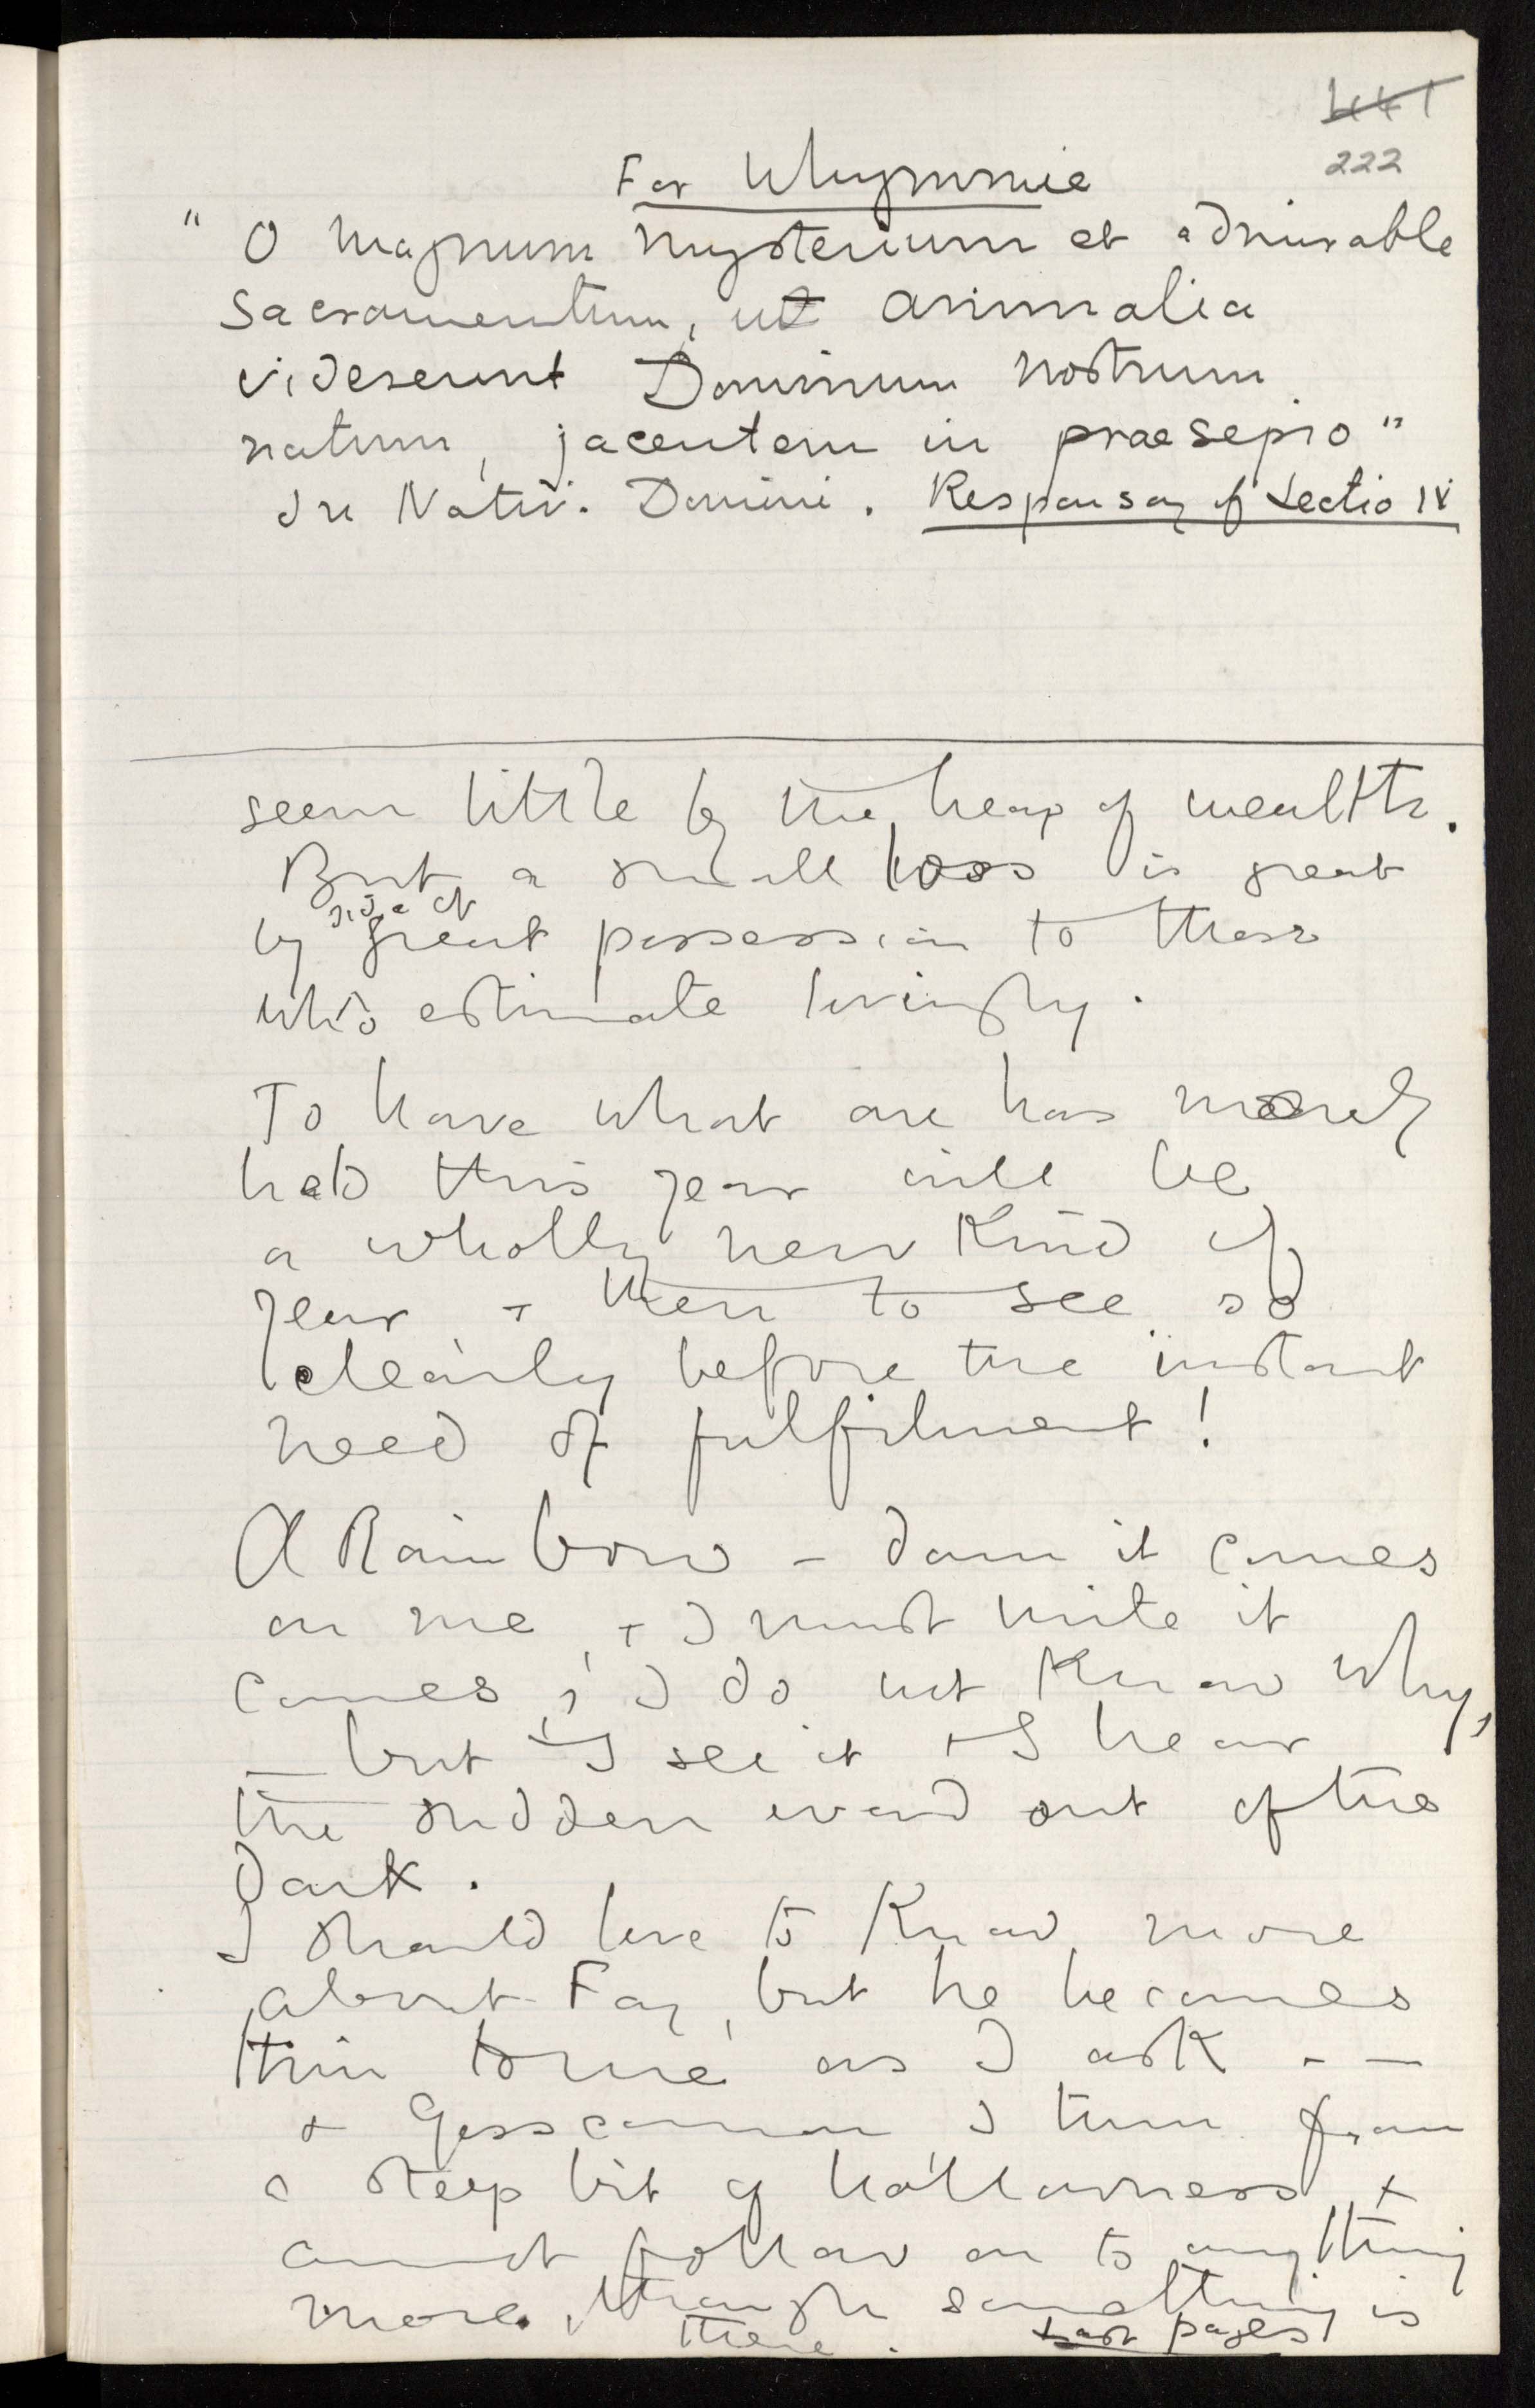 441
222
For Whymmie
" O magnum mysterium et admirable
Sacramentum, ut animalia
viderunt Dominum nostrum
natum, jacentem in praesepio "
In Nativ. Domini. Responsory of Lectio IV
seem little by the heap of wealth.
But a small loss is great
side of
by great possession to those
who estimate lovingly.
To have what one has merely
had this year will be
a wholly new kind of
year + then to see so
clearly before the instant
need of fulfilment!
A Rainbow - down it comes
on me, + I must write it
comes; I do not know why,
— but I see it + I hear
the sudden word out of the
Dark.
I should love to know more
about Fay, but he becomes
thin to me as I ask - —
+ I turn from
a steep bit of hollowness +
cannot follow on to anything
more, though something is
there. Last pages